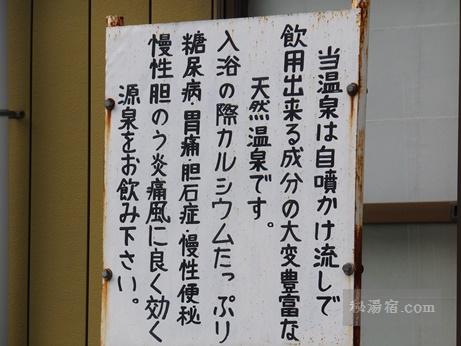 当温泉は自噴かけ流しで
飲用出来る成分の大変豊富な
天然温泉です。
入浴の際カルシウムたっぷり
糖尿病・胃痛・胆石症・慢性便秘
慢性胆のう炎痛風に良く効く
源泉をお飲み下さい。
秘湯宿.com